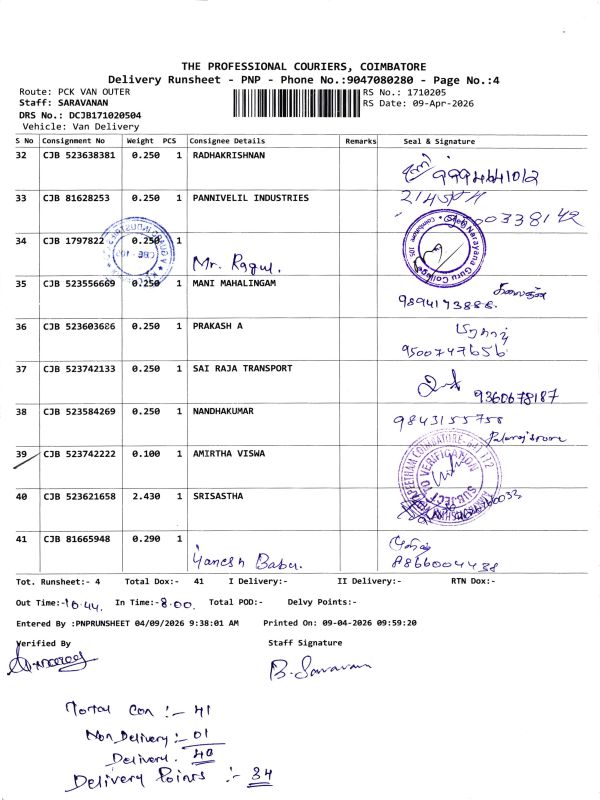 THE PROFESSIONAL COURIERS, COIMBATORE
Delivery Runsheet - PNP - Phone No.:9047080280 - Page No.:4
Route: PCK VAN OUTER RS No.: 1710205
Staff: SARAVANAN RS Date: 09-Apr-2026
DRS No.: DCJB171020504
Vehicle: Van Delivery
S No Consignment No Weight PCS Consignee Details Remarks Seal & Signature
32 CJB 523638381 0.250 1 RADHAKRISHNAN
33 CJB 81628253 0.250 1 PANNIVELIL INDUSTRIES
34 CJB 1797822 0.250 1 Mr. Ragul.
35 CJB 523556669 0.250 1 MANI MAHALINGAM
9894173888.
36 CJB 523603686 0.250 1 PRAKASH A
9500747656
37 CJB 523742133 0.250 1 SAI RAJA TRANSPORT
9360678187
38 CJB 523584269 0.250 1 NANDHAKUMAR
9843155758
39 CJB 523742222 0.100 1 AMIRTHA VISWA
SUBJECT TO VERIFICATION
40 CJB 523621658 2.430 1 SRISASTHA
41 CJB 81665948 0.290 1
8866004438
Tot. Runsheet:- 4 Total Dox:- 41 I Delivery:- II Delivery:- RTN Dox:-
Out Time:-10.44. In Time:-8.00. Total POD:- Delvy Points:-
Entered By :PNPRUNSHEET 04/09/2026 9:38:01 AM Printed On: 09-04-2026 09:59:20
Verified By Staff Signature
B. Saravanan
Total Con :- 41
Non Delivery :- 01
Delivery. 40
Delivery Points :- 34